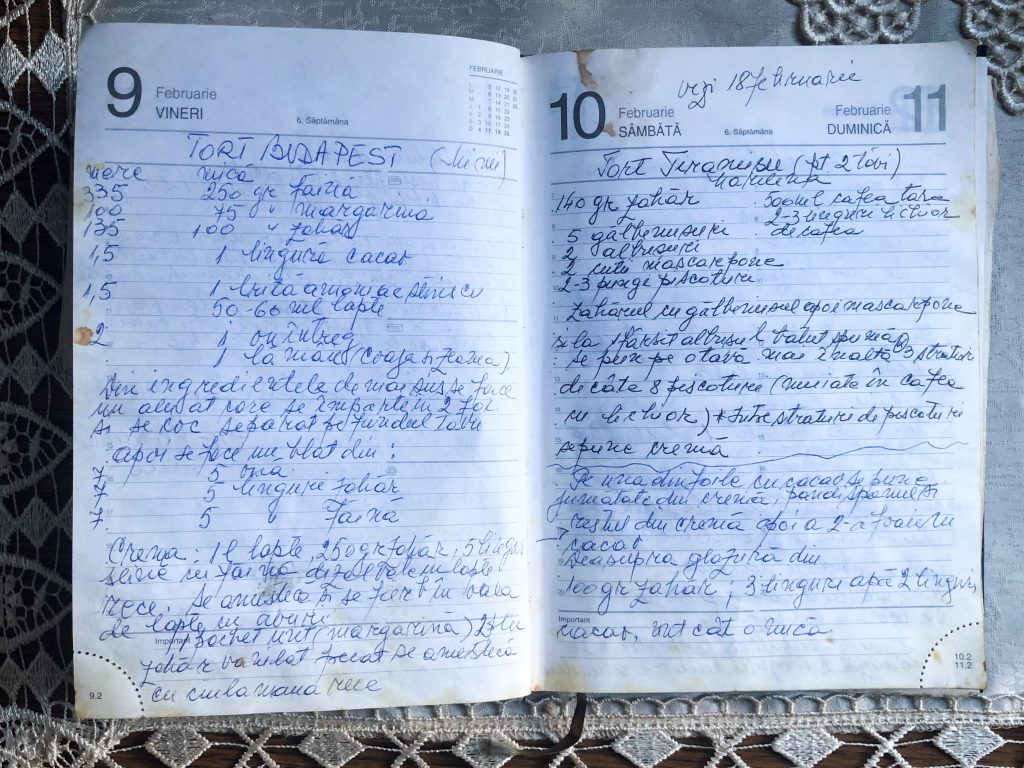 9
Februarie
VINERI
6. Săptămâna
FEBRUARIE
TORT BUDAPEST
mere mică
335 250 gr faină
100 75 " margarină
135 100 " zahăr
1,5 1 lingură cacao
1,5 1
50-60 ml lapte
2 1 ou întreg
1 lămâie (coaja și zeama).
Din ingredientele de mai sus se face
un aluat care se împarte în 2 foi
și se coc separat pe fundul tăvii
apoi se face un blat din:
7 5 ouă
7 5 linguri zahăr
7 5 " faină
Crema: 1 l lapte, 250 gr zahăr, 5 linguri
pline cu faină dizolvate în lapte
rece. Se amestecă și se fierb în vasul
de lapte cu aburi
Important
1 pachet unt (margarină)
zahăr vanilat frecat se amestecă
rece
9.2
10
Februarie
SÂMBĂTĂ
6. Săptămâna
vezi 18 februarie
Februarie
DUMINICĂ
11
Tort Tiramisu (pt. 2 tăvi)
Marilena
140 gr zahăr
5 gălbenușuri
2 albușuri
2 cutii mascarpone
2-3 pungi pișcoturi
500 ml cafea tare
2-3 linguri lichior
de cafea
Zahărul cu gălbenușul apoi mascarpone
și la sfârsit albușul bătut spumă
Se pun pe o tavă mai înaltă 3 straturi
de câte 8 pișcoturi (muiate în cafea
cu lichior) * Între straturi de pișcoturi
se pune cremă
Pe una din foile cu cacao se pune
jumătate din cremă, pandișpanul și
restul din cremă apoi a 2-a foaie cu
cacao
Deasupra glazură din
100 gr zahăr; 3 linguri apă 2 linguri
Important
cacao, unt cât o nucă
10.2
11.2